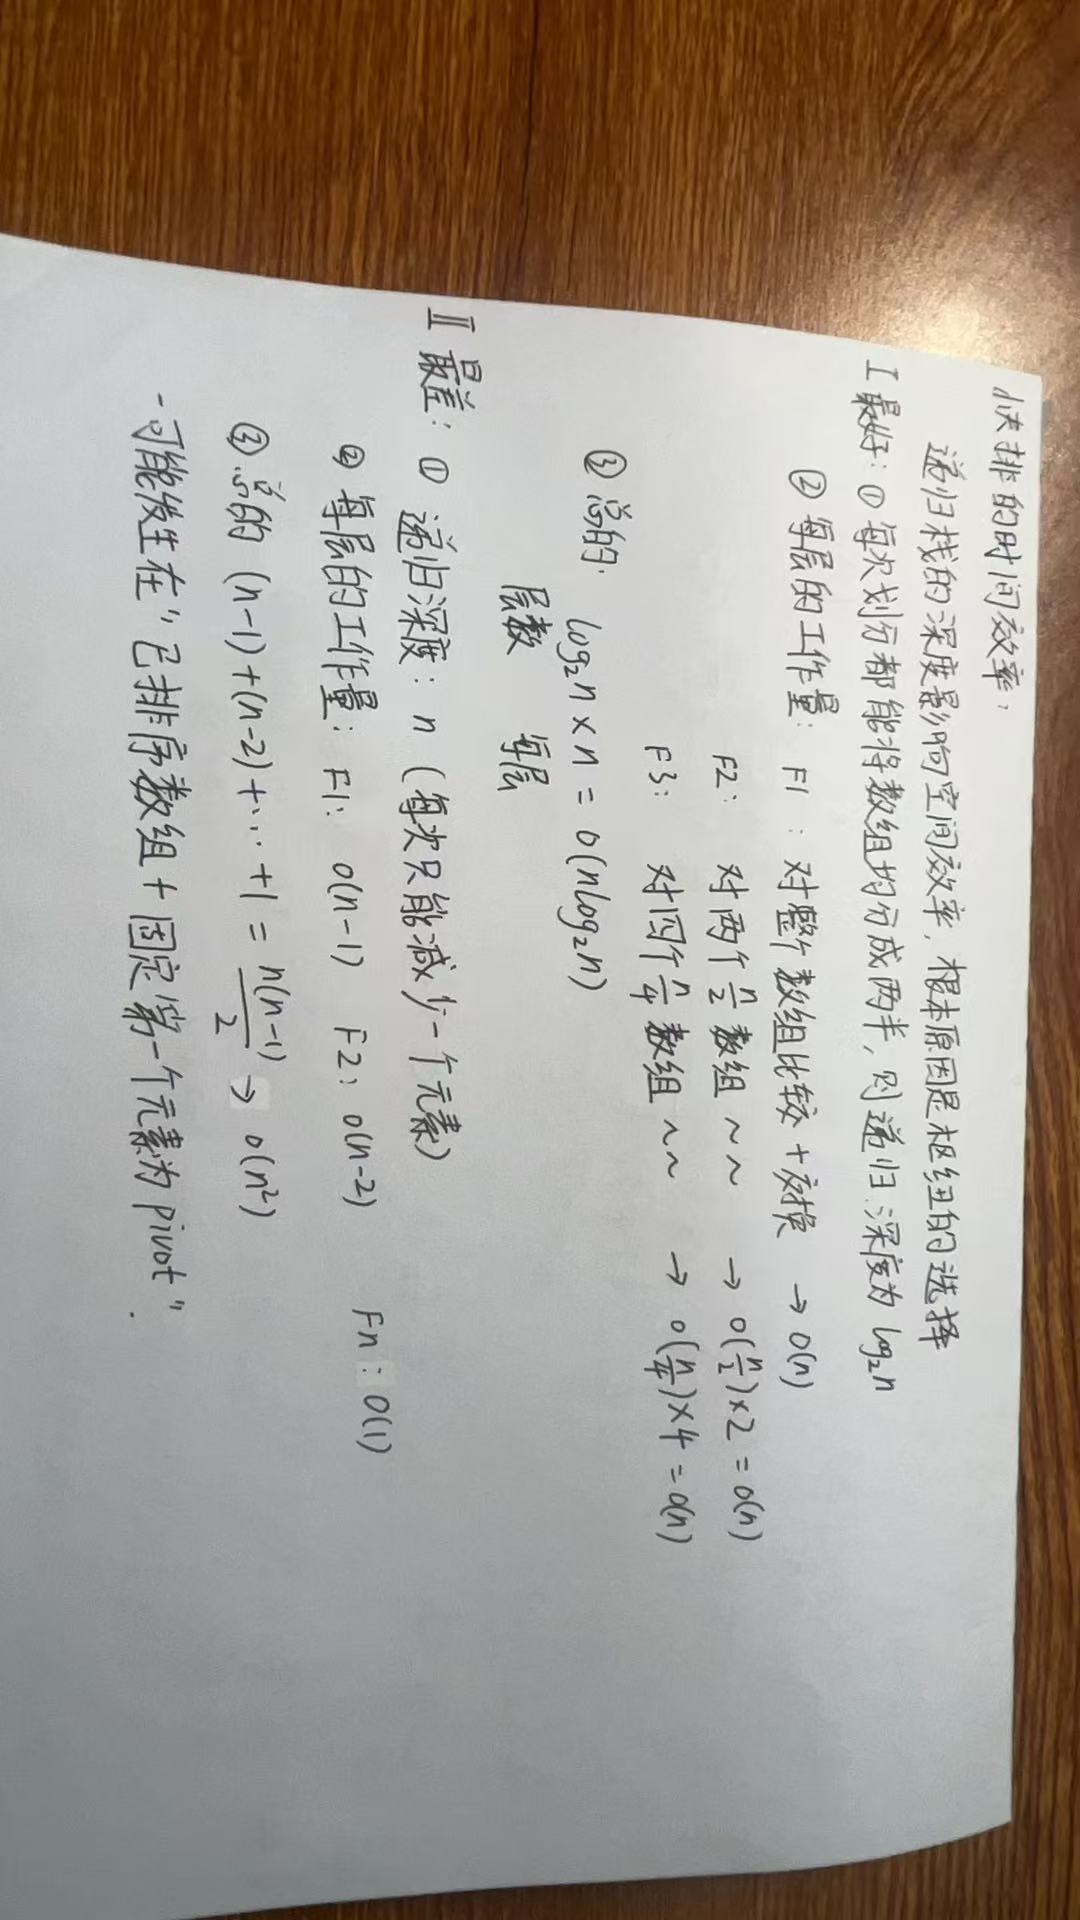 快排的时间效率:
递归栈的深度影响空间效率,根本原因是枢纽的选择
I 最好: ① 每次划分都能将数组均分成两半,则递归深度为 log₂n
② 每层的工作量: F1 : 对整个数组比较 + 交换 → O(n)
F2: 对两个 n/2 数组 ~~ → O(n/2)×2 = O(n)
F3: 对四个 n/4 数组 ~~ → O(n/4)×4 = O(n)
③ 总的. log₂n × n = O(nlog₂n)
层数 每层
II 最差: ① 递归深度: n (每次只能减少一个元素)
② 每层的工作量: F1: O(n-1) F2: O(n-2) Fn: O(1)
③ 总的 (n-1)+(n-2)+⋯+1 = n(n-1)/2 → O(n²)
- 可能发生在"已排序数组 + 固定第一个元素为 pivot".